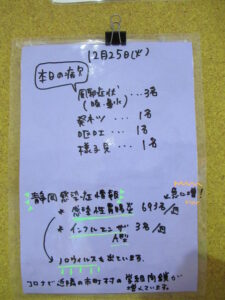 12月25日(火)
本日の病欠
風邪症状…3名
(咳・鼻水)
発ネツ…1名
嘔吐…1名
様子見…1名
静岡感染症情報
急に増!
* 感染性胃腸炎 693名/週
* インフルエンザ 3名/週
A型
ノロウイルスも出ています。
近隣の市町村の学級閉鎖が
増えています。